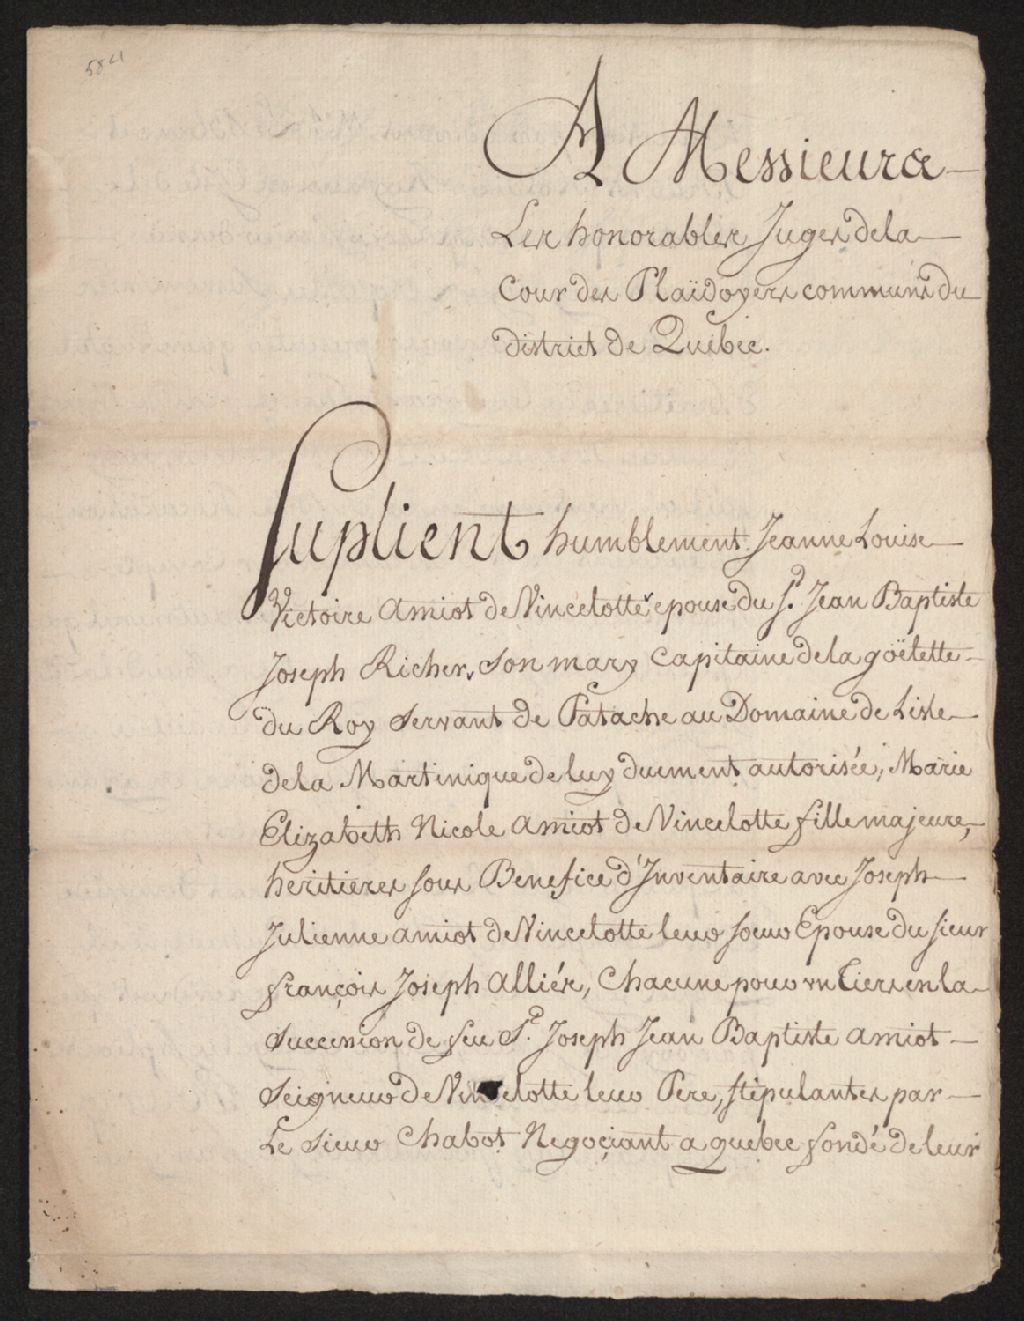 584
A Messieurs
Les honorables Juges dela
Cour des Plaïdoyers communs du
district de Quebec.
Suplient humblement Jeanne Louise
Victoire Amiot de Vincelotte epouse du Sr. Jean Baptiste
Joseph Richer, son mary Capitaine dela göelette
du Roy servant de Patache au Domaine de Lisle
dela Martinique de luy duement autorisée, Marie
Elizabeth Nicole Amiot de Vincelotte fille majeure,
heritieres sous Benefice d'Inventaire avec Joseph
Julienne amiot de Vincelotte leur soeur Epouse du sieur
françois Joseph Alliér, Chacune pour un tiers en la
Succession de feu Sr. Joseph Jean Baptiste amiot
Seigneur de Vincelotte leur Pere, stipulantes par
Le sieur Chabot Negoçiant a quebec fondé de leur